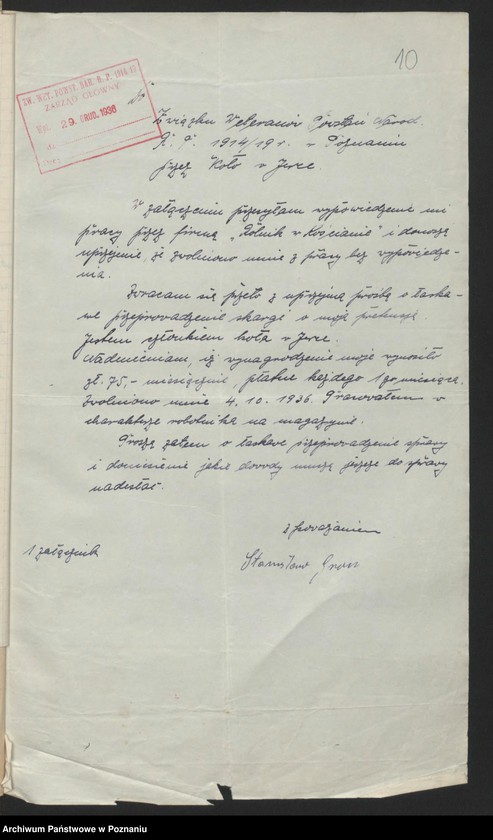 10
ZW. WET. POWST. NAR. R. P. 1914-19
ZARZĄD GŁÓWNY
Wpł. 29. GRUD. 1936
do
Związku Weteranów Powstań Narod.
R. P. 1914/19 r. w Poznaniu
przez Koło w Jerce.
W załączeniu przesyłam wypowiedzenie mi
pracy przez firmę „Rolnik w Kościanie" i donoszę
uprzejmie, że zwolniono mnie z pracy bez wypowiedze-
nia.
Zwracam się przeto z uprzejmą prośbą o łaska-
we przeprowadzenie skargi o moją pretensję.
Jestem członkiem koła w Jerce.
Nadmieniam, iż wynagrodzenie moje wynosiło
zł. 75,- miesięcznie, płatne każdego 1 go miesiąca.
Zwolniono mnie 4. 10. 1936. Pracowałem w
charakterze robotnika na magazynie.
Proszę zatem o łaskawe przeprowadzenie sprawy
i doniesienie jakie dowody muszę jeszcze do sprawy
nadesłać.
Z poważaniem
1 załącznik
Stanisław
Archiwum Państwowe w Poznaniu